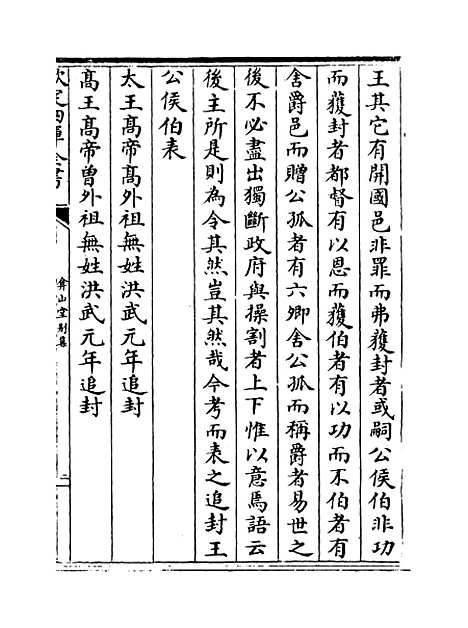 王其它有開國邑非罪而弗獲封者或嗣公侯伯非功
而獲封者都督有以恩而獲伯者有以功而不伯者有
舍爵邑而贈公孤者有六卿舍公孤而稱爵者易世之
後不必盡出獨斷政府與操割者上下惟以意焉語云
後主所是則為令其然豈其然哉今考而表之追封王
公侯伯表
太王髙帝髙外祖無姓洪武元年追封
髙王髙帝曽外祖無姓洪武元年追封
欽定四庫全書
弇山堂别集
二